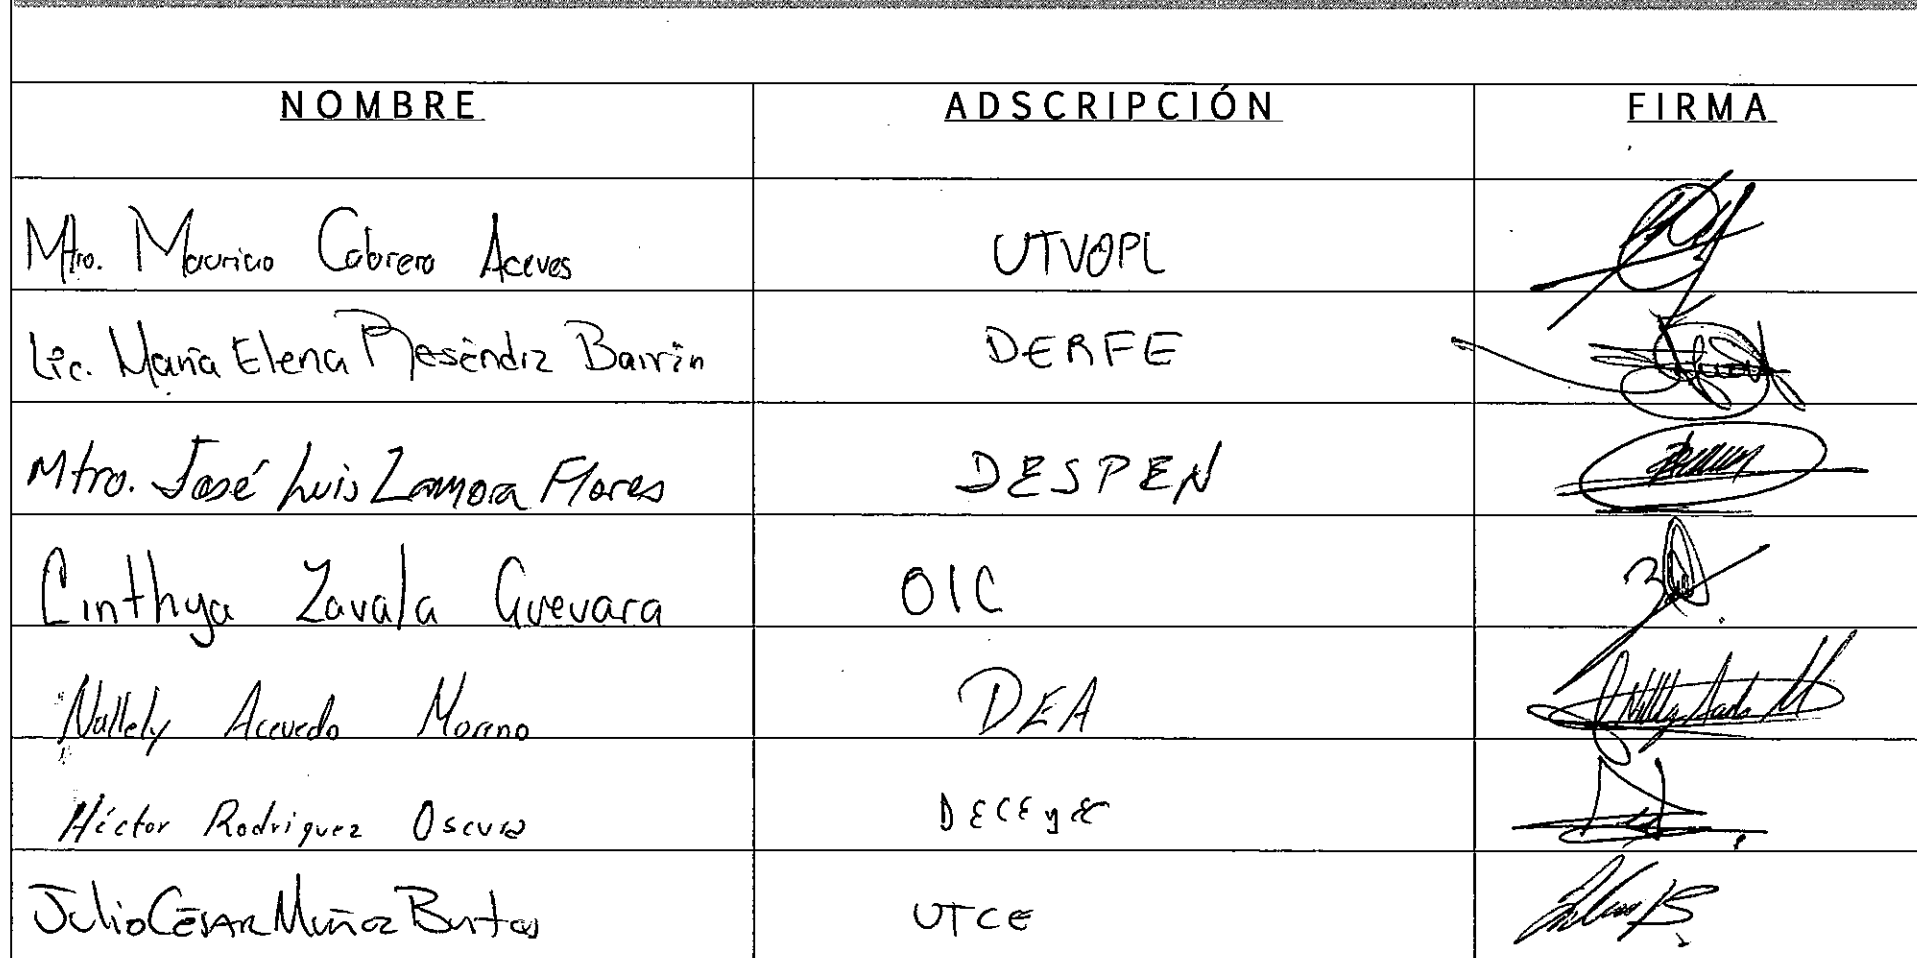 NOMBRE ADSCRIPCIÓN FIRMA
Mtro. Mauricio Cabrera Aceves UTVOPL
Lic. María Elena Reséndiz Barrín DERFE
Mtro. José Luis Zamora Flores DESPEN
Cinthya Zavala Guevara OIC
Nallely Acevedo Moreno DEA
Héctor Rodriguez Oscura DECEyEC
Julio CésAR Muñoz Bustos UTCE